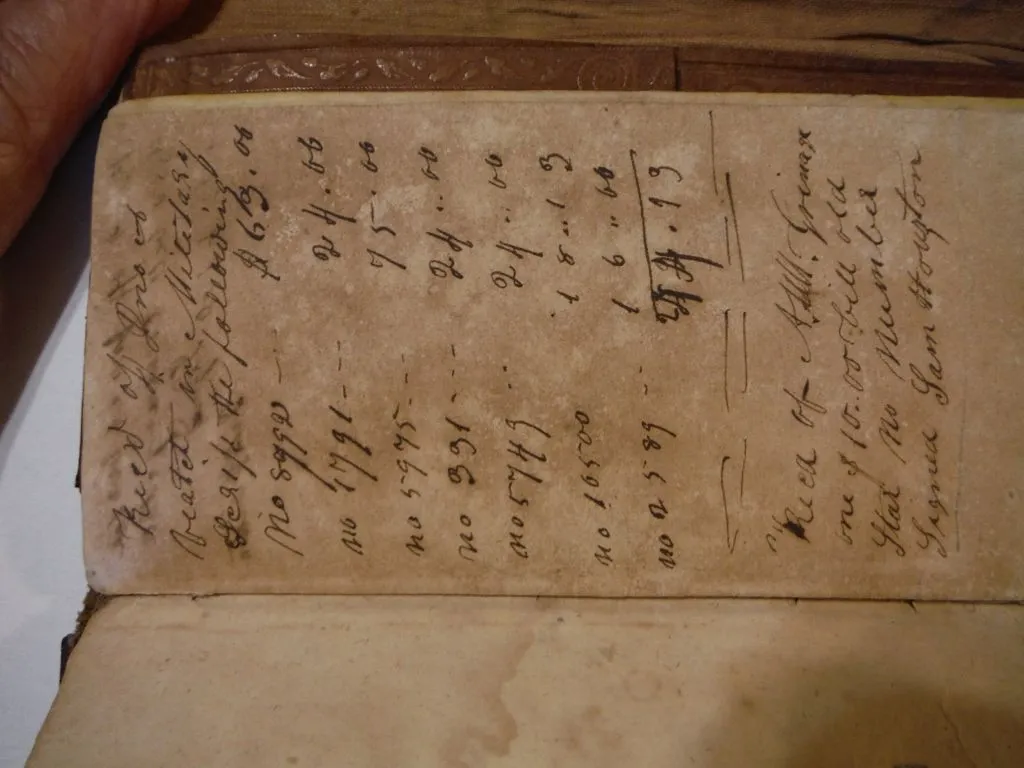 Recd of Jno
Military
Scrip the following
No 8992 -- $ 63.00
no 1791 --- 24.00
no 5975 --- 75..00
no 391 --- 24..00
no 5749 .. 24..00
no 16500 . 18..13
no 2589 -- 16..00
244.13
Recd of Grimes
one $10.00 bill old
Star no Number
Signed Sam Houston